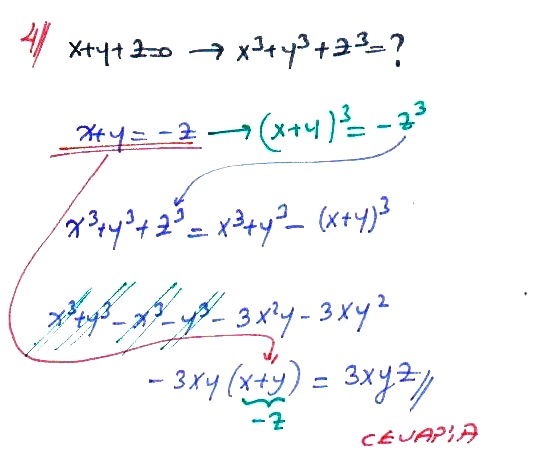 4// x+y+z=0 → x³+y³+z³=?
x+y = -z → (x+y)³ = -z³
x³+y³+z³ = x³+y³- (x+y)³
x³+y³-x³-y³- 3x²y-3xy²
-3xy(x+y) = 3xyz//
-z
CEVAP:A